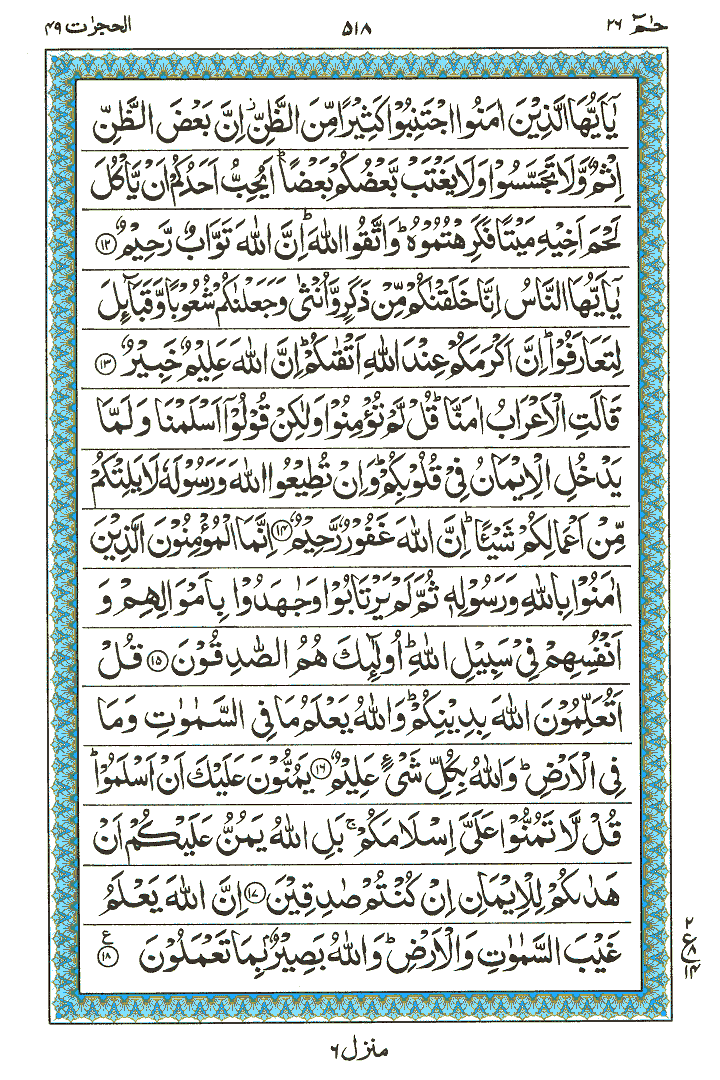 حٰمٓ ٢٦ ٥١٨ الحجرٰت ٤٩
يٰٓاَيُّهَا الَّذِيْنَ اٰمَنُوا اجْتَنِبُوْا كَثِيْرًا مِّنَ الظَّنِّ ۫ اِنَّ بَعْضَ الظَّنِّ
اِثْمٌ وَّلَا تَجَسَّسُوْا وَلَا يَغْتَبْ بَّعْضُكُمْ بَعْضًا ؕ اَيُحِبُّ اَحَدُكُمْ اَنْ يَّاْكُلَ
لَحْمَ اَخِيْهِ مَيْتًا فَكَرِهْتُمُوْهُ ؕ وَاتَّقُوا اللّٰهَ ؕ اِنَّ اللّٰهَ تَوَّابٌ رَّحِيْمٌ ۝١٢
يٰٓاَيُّهَا النَّاسُ اِنَّا خَلَقْنٰكُمْ مِّنْ ذَكَرٍ وَّاُنْثٰى وَجَعَلْنٰكُمْ شُعُوْبًا وَّقَبَآئِلَ
لِتَعَارَفُوْا ؕ اِنَّ اَكْرَمَكُمْ عِنْدَ اللّٰهِ اَتْقٰىكُمْ ؕ اِنَّ اللّٰهَ عَلِيْمٌ خَبِيْرٌ ۝١٣
قَالَتِ الْاَعْرَابُ اٰمَنَّا ؕ قُلْ لَّمْ تُؤْمِنُوْا وَلٰكِنْ قُوْلُوْٓا اَسْلَمْنَا وَلَمَّا
يَدْخُلِ الْاِيْمَانُ فِيْ قُلُوْبِكُمْ ؕ وَاِنْ تُطِيْعُوا اللّٰهَ وَرَسُوْلَهٗ لَا يَلِتْكُمْ
مِّنْ اَعْمَالِكُمْ شَيْـًٔا ؕ اِنَّ اللّٰهَ غَفُوْرٌ رَّحِيْمٌ ۝١٤ اِنَّمَا الْمُؤْمِنُوْنَ الَّذِيْنَ
اٰمَنُوْا بِاللّٰهِ وَرَسُوْلِهٖ ثُمَّ لَمْ يَرْتَابُوْا وَجٰهَدُوْا بِاَمْوَالِهِمْ وَ
اَنْفُسِهِمْ فِيْ سَبِيْلِ اللّٰهِ ؕ اُولٰٓئِكَ هُمُ الصّٰدِقُوْنَ ۝١٥ قُلْ
اَتُعَلِّمُوْنَ اللّٰهَ بِدِيْنِكُمْ ؕ وَاللّٰهُ يَعْلَمُ مَا فِي السَّمٰوٰتِ وَمَا
فِي الْاَرْضِ ؕ وَاللّٰهُ بِكُلِّ شَيْءٍ عَلِيْمٌ ۝١٦ يَمُنُّوْنَ عَلَيْكَ اَنْ اَسْلَمُوْا ؕ
قُلْ لَّا تَمُنُّوْا عَلَيَّ اِسْلَامَكُمْ ۚ بَلِ اللّٰهُ يَمُنُّ عَلَيْكُمْ اَنْ
هَدٰىكُمْ لِلْاِيْمَانِ اِنْ كُنْتُمْ صٰدِقِيْنَ ۝١٧ اِنَّ اللّٰهَ يَعْلَمُ
غَيْبَ السَّمٰوٰتِ وَالْاَرْضِ ؕ وَاللّٰهُ بَصِيْرٌۢ بِمَا تَعْمَلُوْنَ ۝١٨ ع
٢
ع ٨
١٤
منزل ٦